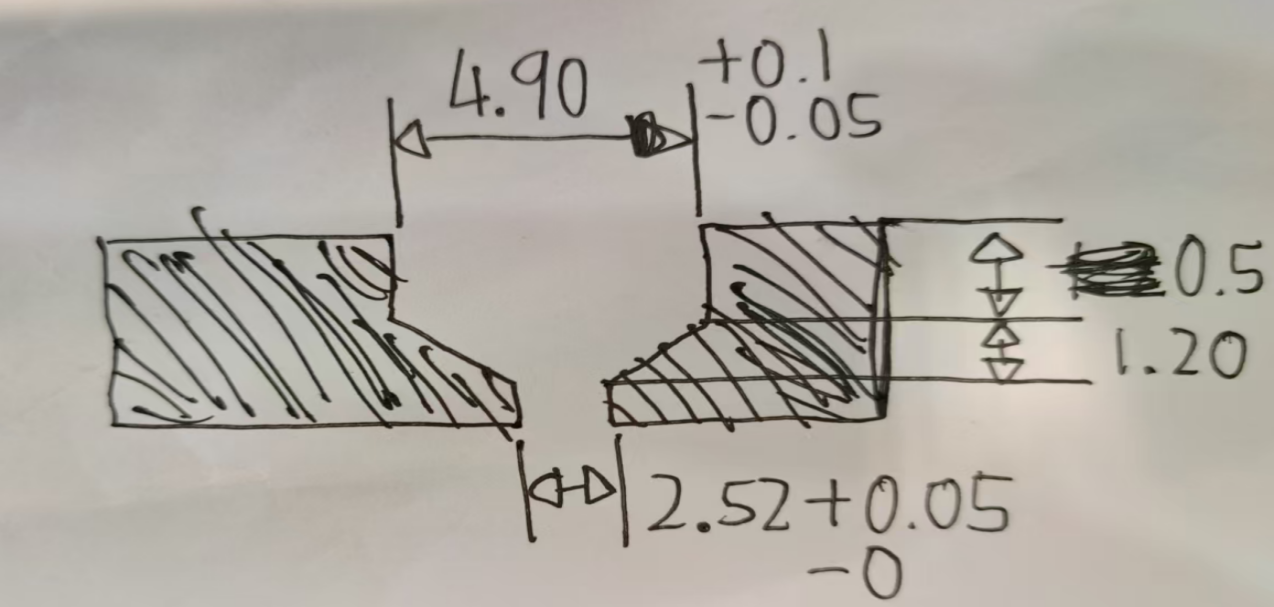 4.90 +0.1
-0.05
0.5
1.20
2.52+0.05
-0